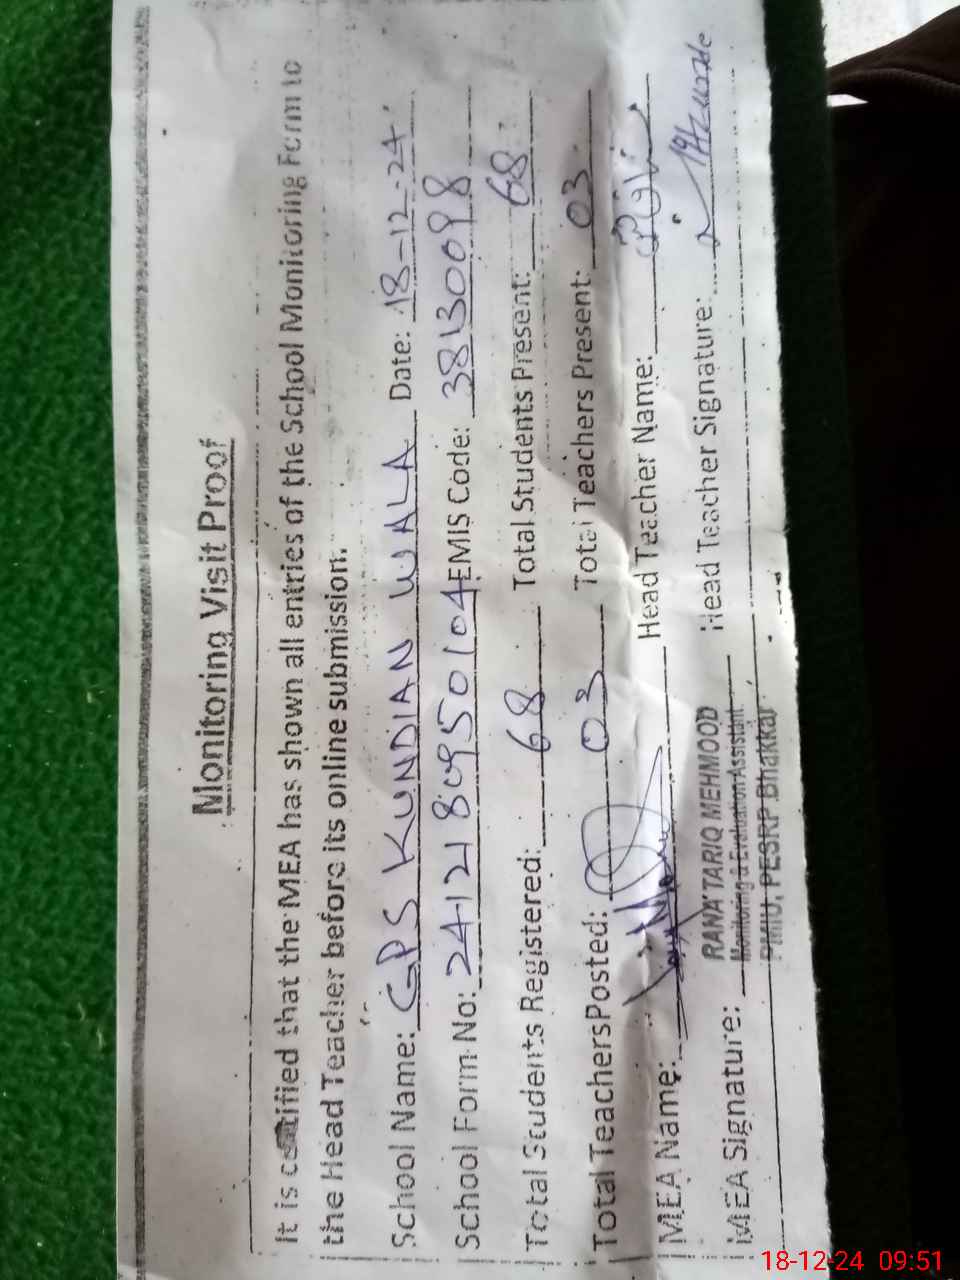 Monitoring Visit Proof
It is certified that the MEA has shown all entries of the School Monitoring Form to
the Head Teacher before its online submission.
School Name: GPS KUNDIAN WALA Date: 18-12-24
School Form No: 2412180950104 EMIS Code: 38130098
Total Students Registered: 68 Total Students Present: 68
Total Teachers Posted: 03 Total Teachers Present: 03
MEA Name: Head Teacher Name:
RANA TARIQ MEHMOOD
MEA Signature: Head Teacher Signature:
Monitoring & Evaluation Assistant
PMIU, PESRP Bhakkar
18-12-24 09:51